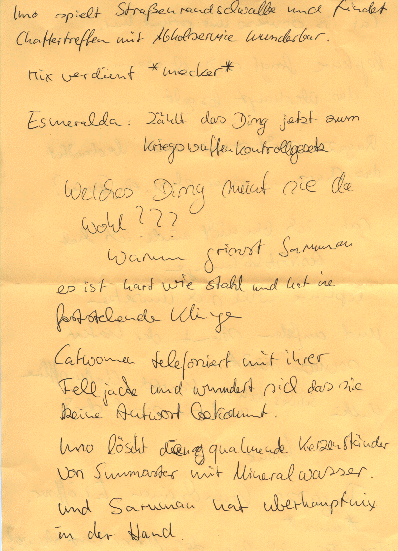 Uno spielt Straßenrandschwalbe und findet
Chattertreffen mit Abholservice wunderbar.
nix verdient *mecker*
Esmeralda: Zählt das Ding jetzt zum
Kriegswaffenkontrollgesetz
Welches Ding meint sie da
wohl???
Warum grinst Saruman
es ist hart wie stahl und hat ne
feststehende Klinge
Catwoman telefoniert mit ihrer
Felljacke und wundert sich das sie
keine Antwort bekommt.
Uno löscht qualmende Kerzenständer
von Sunmaster mit Mineralwasser.
und Saruman hat überhauptnix
in der Hand.